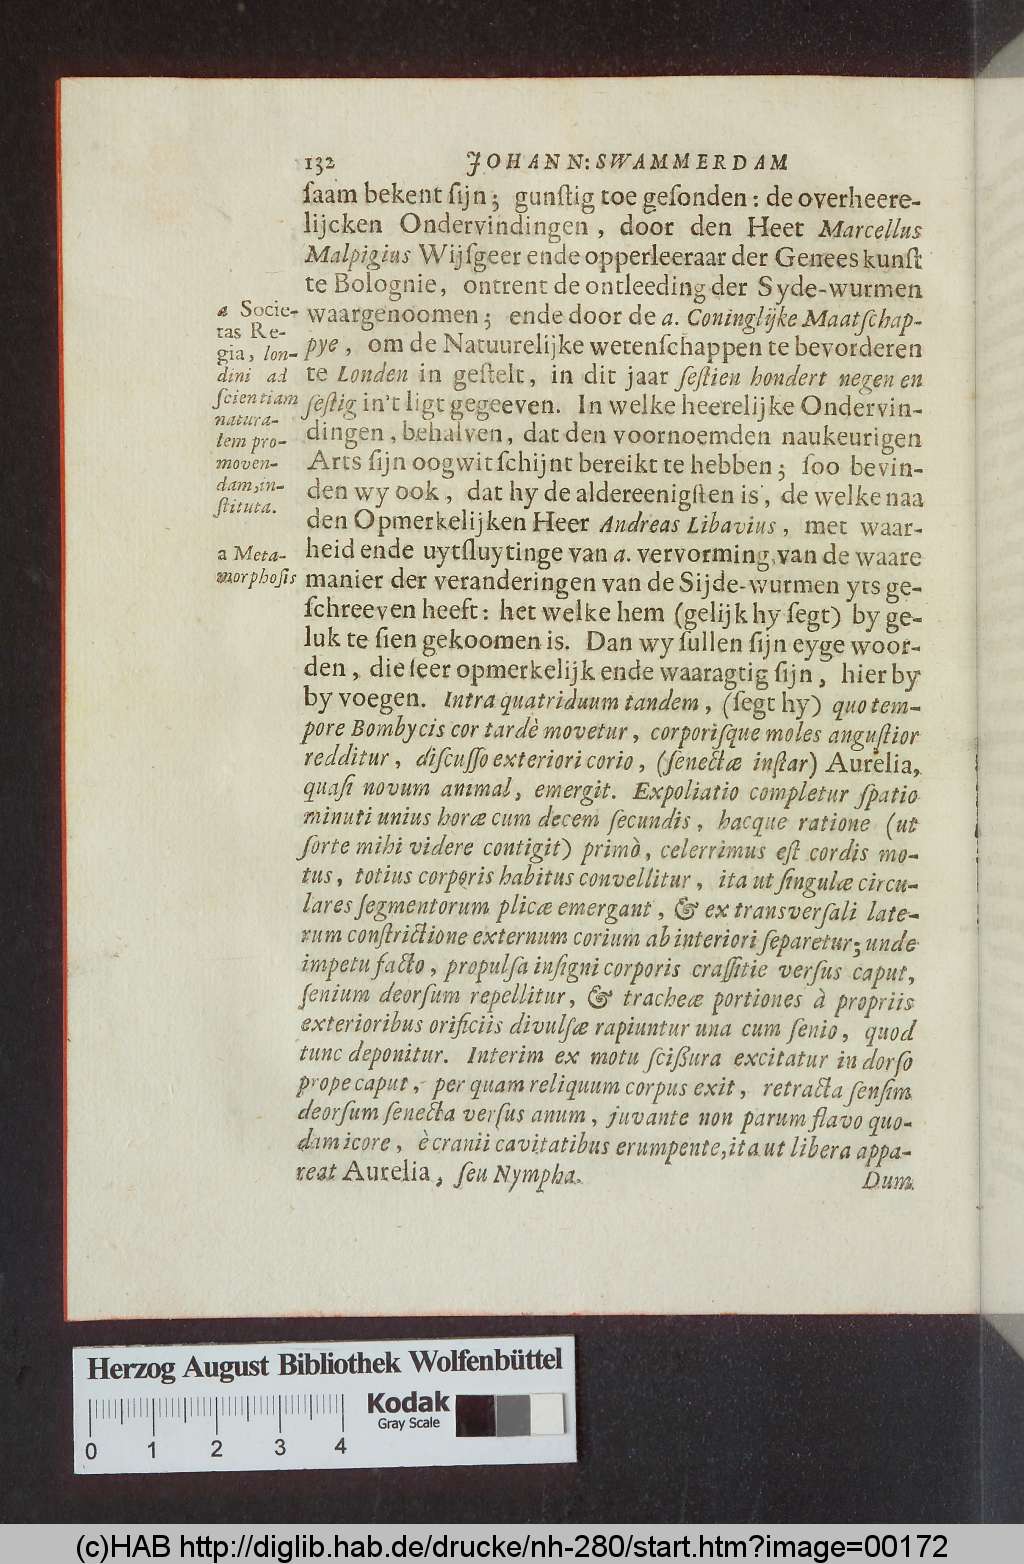 132 JOHANN: SWAMMERDAM
ſaam bekent ſijn; gunſtig toe geſonden: de overheere-
lijcken Ondervindingen, door den Heer Marcellus
Malpigius Wijſgeer ende opperleeraar der Genees kunſt
te Bolognie, ontrent de ontleeding der Syde-wurmen
waargenoomen; ende door de a. Coninglijke Maatſchap-
pye, om de Natuurelijke wetenſchappen te bevorderen
te Londen in geſtelt, in dit jaar ſeſtien hondert negen en
ſeſtig in't ligt gegeeven. In welke heerelijke Ondervin-
dingen, behalven, dat den voornoemden naukeurigen
Arts ſijn oogwit ſchijnt bereikt te hebben; ſoo bevin-
den wy ook, dat hy de aldereenigſten is, de welke naa
den Opmerkelijken Heer Andreas Libavius, met waar-
heid ende uytſluytinge van a. vervorming, van de waare
manier der veranderingen van de Sijde-wurmen yts ge-
ſchreeven heeft: het welke hem (gelijk hy ſegt) by ge-
luk te ſien gekoomen is. Dan wy ſullen ſijn eyge woor-
den, die ſeer opmerkelijk ende waaragtig ſijn, hier by
by voegen. Intra quatriduum tandem, (ſegt hy) quo tem-
pore Bombycis cor tardè movetur, corporiſque moles anguſtior
redditur, diſcuſſo exteriori corio, (ſenectæ inſtar) Aurelia,
quaſi novum animal, emergit. Expoliatio completur ſpatio
minuti unius horæ cum decem ſecundis, hacque ratione (ut
ſorte mihi videre contigit) primò, celerrimus eſt cordis mo-
tus, totius corporis habitus convellitur, ita ut ſingulæ circu-
lares ſegmentorum plicæ emergant, & ex transverſali late-
rum conſtrictione externum corium ab interiori ſeparetur; unde
impetu facto, propulſa inſigni corporis craſſitie verſus caput,
ſenium deorſum repellitur, & tracheæ portiones à propriis
exterioribus orificiis divulſæ rapiuntur una cum ſenio, quod
tunc deponitur. Interim ex motu ſciſſura excitatur in dorſo
prope caput, per quam reliquum corpus exit, retracta ſenſim
deorſum ſenecta verſus anum, juvante non parum flavo quo-
dam icore, è cranii cavitatibus erumpente, ita ut libera appa-
reat Aurelia, ſeu Nympha.
Dum
a Socie-
tas Re-
gia, lon-
dini ad
ſcientiam
natura-
lem pro-
moven-
dam, in-
ſtituta.
a Meta-
morphoſis
Herzog August Bibliothek Wolfenbüttel
Kodak
Gray Scale
0 1 2 3 4
(c)HAB http://diglib.hab.de/drucke/nh-280/start.htm?image=00172